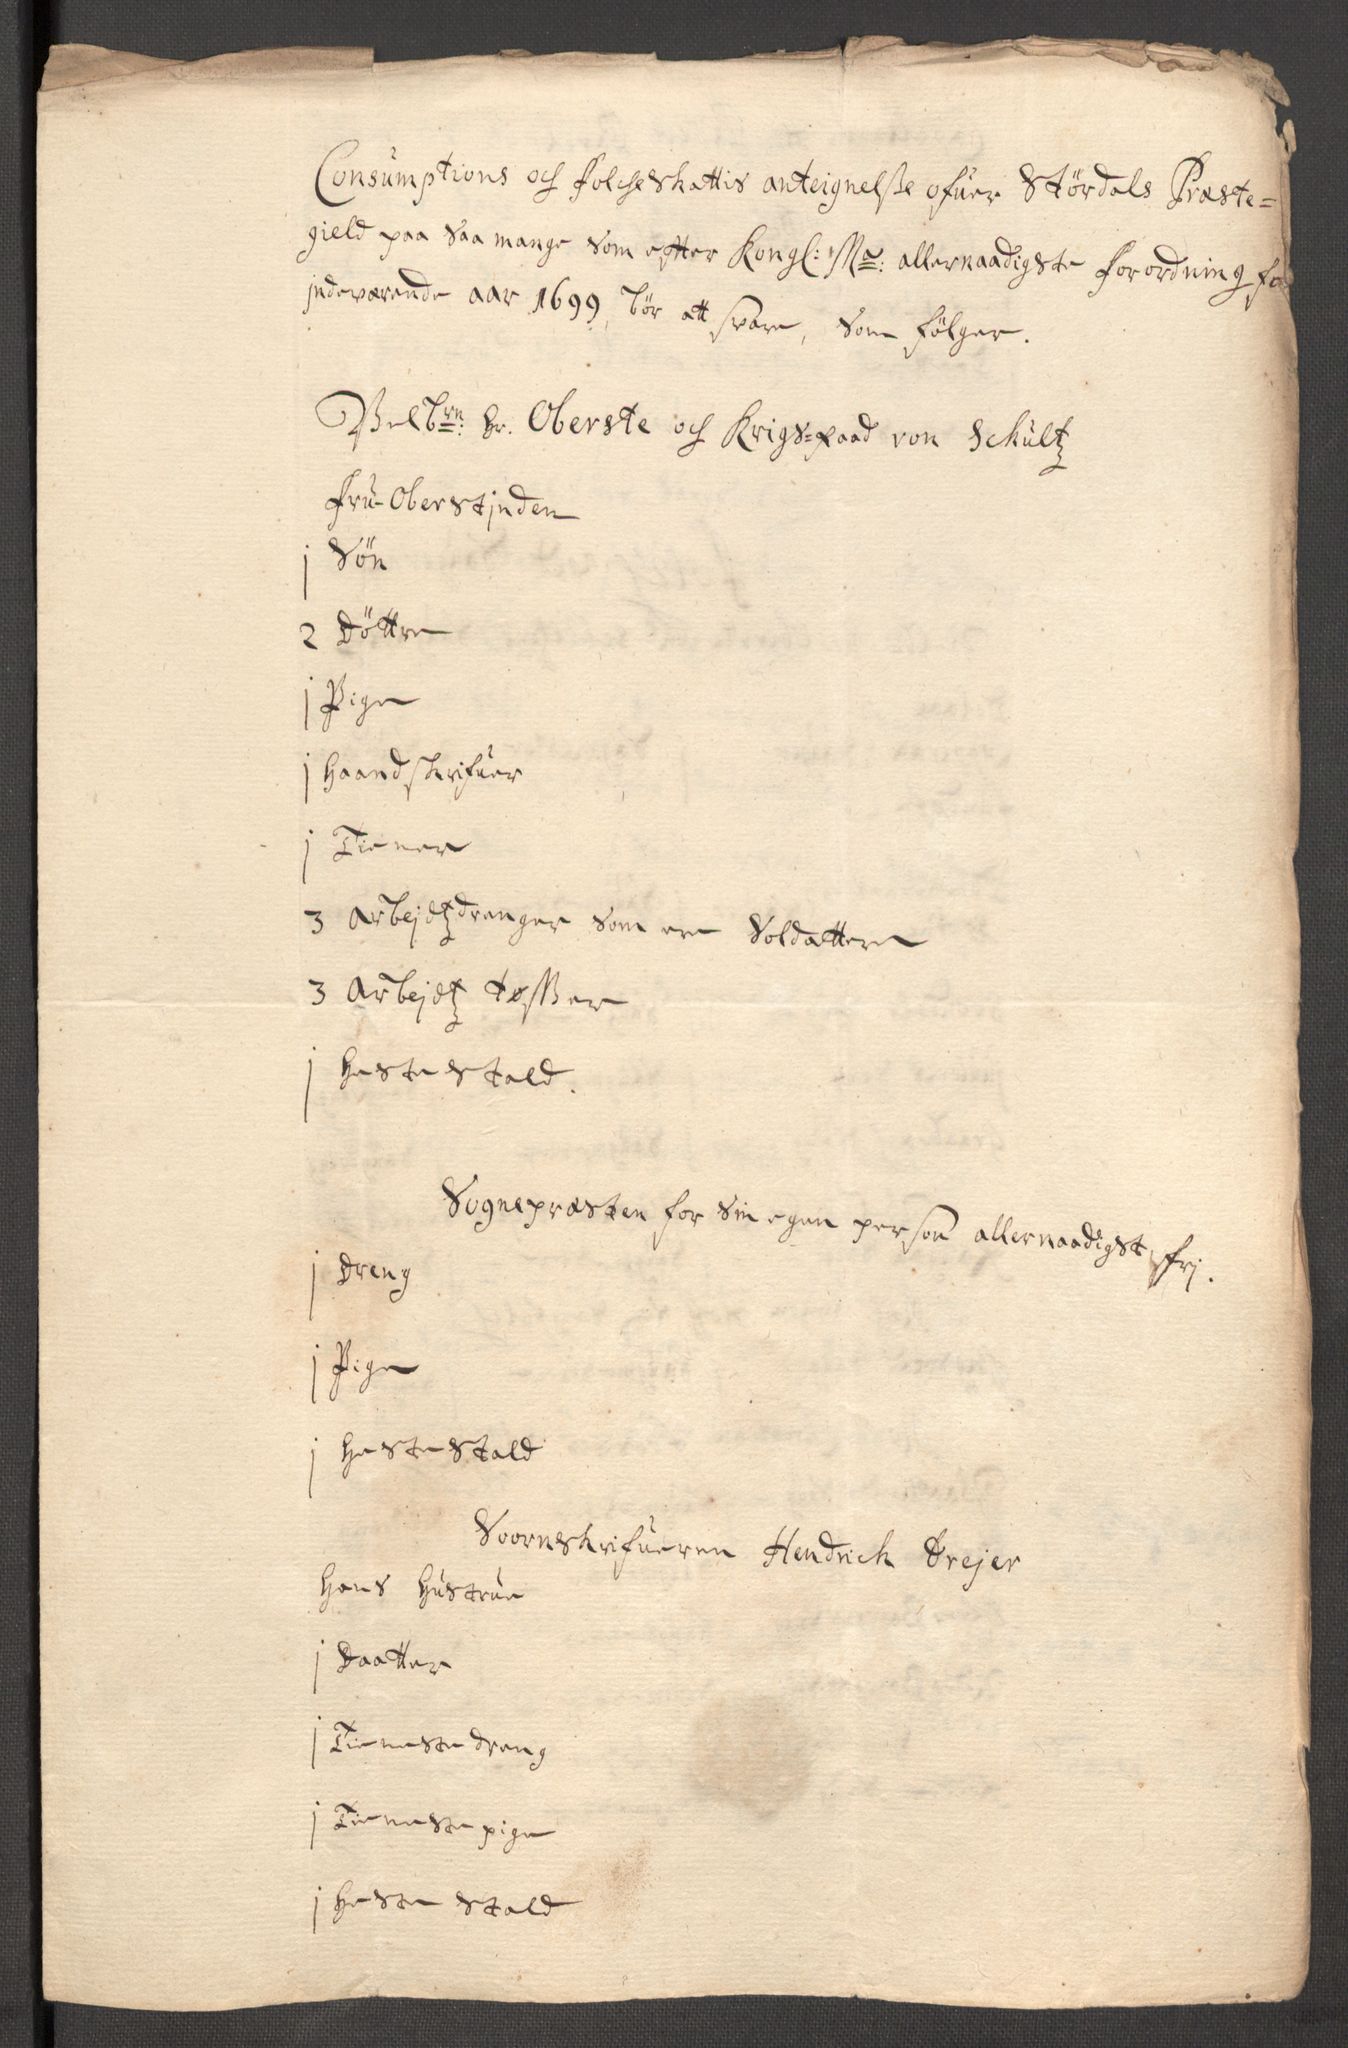 Consumptions och folcheskattis anteignelsse ofuer Stördals Præste-
gield paa saa mange som efter Kongl: Ma: allernaadigste forordning fo
indeværende aar 1699, bör att svare, som fölger.
Velbrn: hr. Oberste och Krigs-Raad von Schultz
fru Oberstinden
j Sön
2 Döttre
j Pige
j haandskrifuer
j Tiener
3 Arbejdtzdrenger som ere Soldattere
3 Arbejdtz tøsser
j hestestald.
Sognepræsten for sin egen person allernaadigst frj.
j Dreng
j Pige
j hestestald
Soornskrifueren Hendrich Drejer
hans hustrue
j Daatter
j Tienestedreng
j Tienestepige
j heste stald